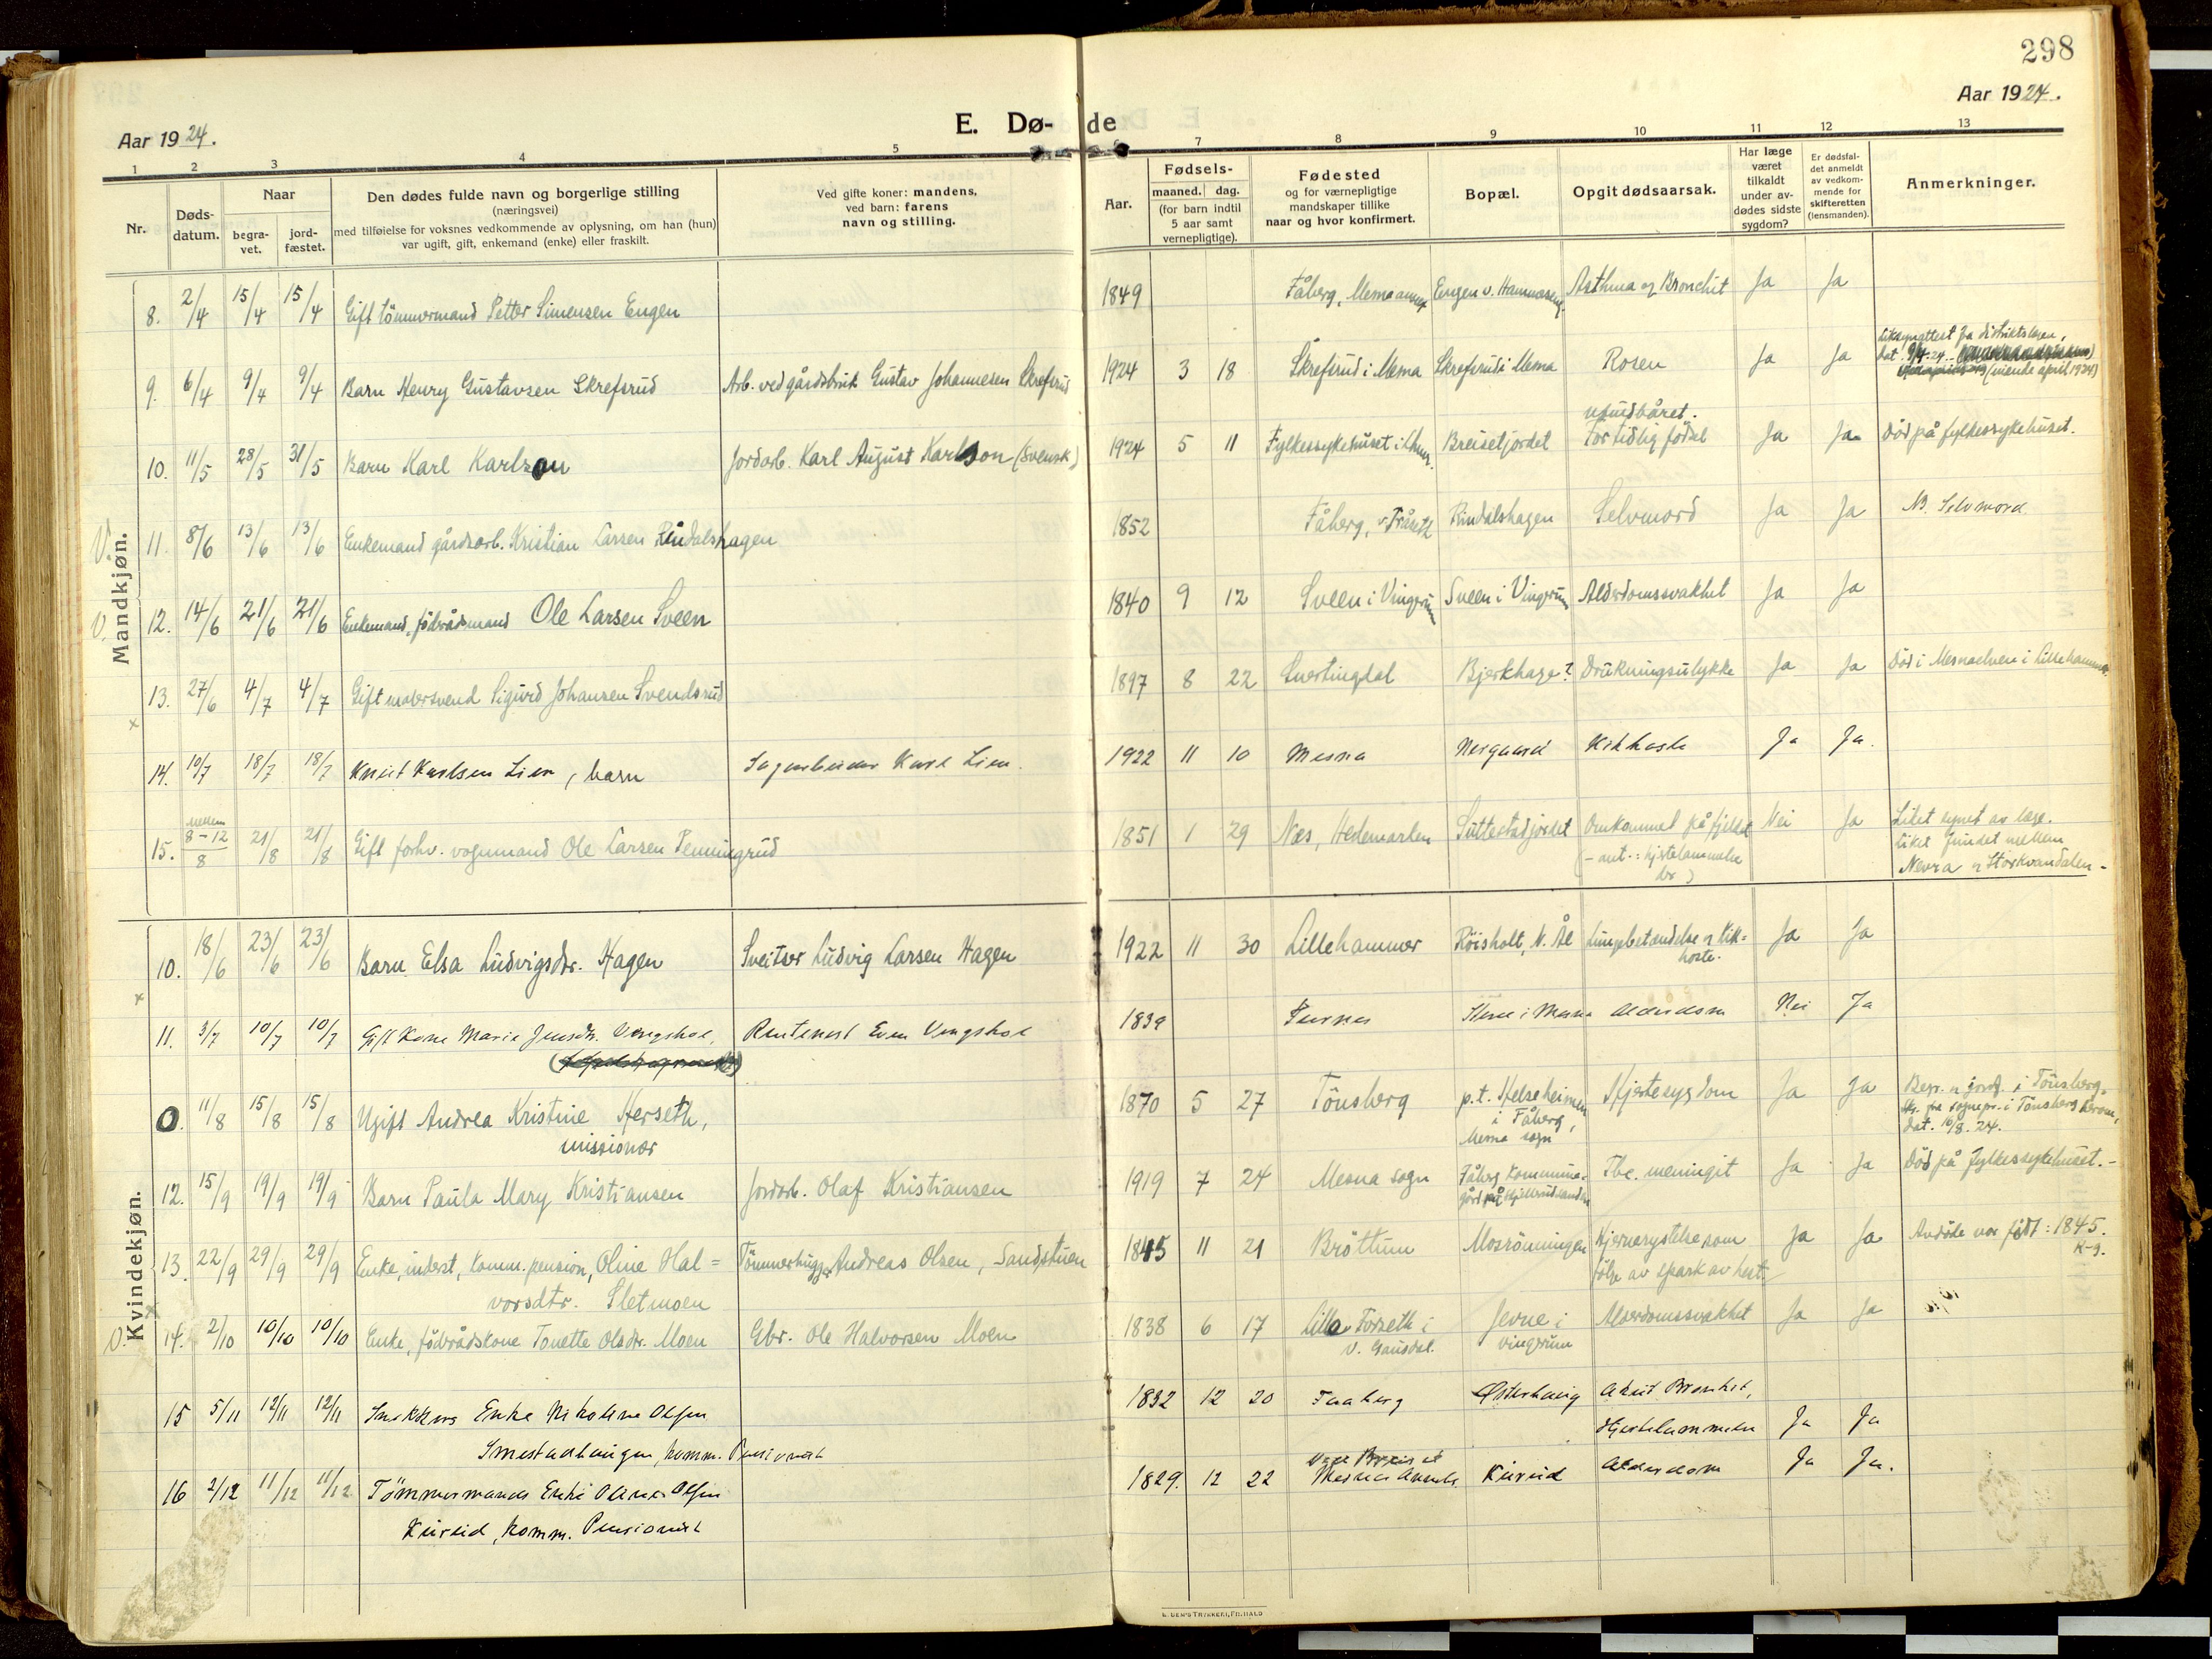 298
Aar 1924.
Aar 1924.
E. Dø- de
1 2 3 4 5 7 8 9 10 11 12 13
Nr.
Døds-
datum.
Naar
begra-
vet.
jord-
fæstet.
Den dødes fulde navn og borgerlige stilling
(næringsvei)
med tilføielse for voksnes vedkommende av oplysning, om han (hun)
var ugift, gift, enkemand (enke) eller fraskilt.
Ved gifte koner: mandens,
ved barn: farens
navn og stilling.
Aar.
Fødsels-
maaned. dag.
(for barn indtil
5 aar samt
vernepligtige).
Fødested
og for værnepligtige
mandskaper tillike
naar og hvor konfirmert.
Bopæl.
Opgit dødsaarsak.
Har læge
været
tilkaldt
under av-
dødes sidste
sygdom?
Er dødsfal-
det anmeldt
av vedkom-
mende for
skifteretten
(lensmanden).
Anmerkninger.
Mandkjøn.
8. 2/4 15/4 15/4 Gift tömmermand Petter Simensen Engen 1849 Fåberg, Mesna annex Engen v. Hammeren Asthma og Bronchit Ja Ja
9. 6/4 9/4 9/4 Barn Henry Gustavsen Skrefsrud Arb. ved gårdsbruk Gustav Johannesen Skrefsrud 1924 3 18 Skrefsrud i Mesna Skrefsrud i Mesna Rosen Ja Ja
dat. 9/4.24.
(niende april 1924)
10. 11/5 28/5 31/5 Barn Karl Karlson Jordarb. Karl August Karlson (svensk) 1924 5 11 Fylkessykehuset i Lhmr. Breisetjordet For tidlig födsel Ja Ja Död på fylkessykehuset.
V. 11. 8/6 13/6 13/6 Enkemand gårdsarb. Kristian Larsen Rindalshagen 1852 Fåberg, Rindalshagen Selvmord Ja Ja NB. Selvmord
V. 12. 14/6 21/6 21/6 Enkemand, födrådsmand Ole Larsen Sveen 1840 9 12 Sveen i Vingrum Sveen i Vingrum Alderdomssvakhet Ja Ja
13. 27/6 4/7 4/7 Gift malersvend Sigurd Johansen Svendsrud 1897 8 22 Snertingdal Bjerkhage? Drukningsulykke Ja Ja Död i Mesnaelven i Lillehammer.
x
14. 10/7 18/7 18/7 Knut Karlsen Lien, barn Sagarbeider Karl Lien. 1922 11 10 Mesna Nergaard Kikhoste Ja Ja.
15. mellem 8-12/8 21/8 21/8 Gift forhv. vognmand Ole Larsen Penningrud 1851 1 29 Næs, Hedemarken Suttestadjordet Omkommet på fjeldet Nei Ja Liket synet av læge.
(- ant.: hjertelammelse
Liket fundet mellem
Nevra og Storkvandalen -
Kvindekjøn.
10. 18/6 23/6 23/6 Barn Elsa Ludvigsdr. Hagen Sveitser Ludvig Larsen Hagen 1922 11 30 Lillehammer Röisholt, N. Ål Lungebetændelse og kik-
hoste. Ja Ja
x
11. 3/7 10/7 10/7 Gift Kone Marie Jensdr. Vengshol, Rentenist Even Vengshol 1839 Furnes Alderdom Nei Ja
0. 11/8 15/8 15/8 Ugift Andrea Kristine Herseth,
missionær 1870 5 27 Tönsberg p.t. Helseheimen
i Fåberg,
Mesna sogn Hjertesygdom Ja Ja Begr. og jordf. i Tönsberg.
dat. 16/8.24.
12. 15/9 19/9 19/9 Barn Paula Mary Kristiansen Jordarb. Olaf Kristiansen 1919 7 24 Mesna sogn Fåberg kommune-
gård på Tbc. meningit Ja Ja Död på fylkessykehuset.-
13. 22/9 29/9 29/9 Enke, inderst, komm. pension, Oline Hal=
vorsdtr. Sletmoen Tömmerhugger Andreas Olsen, Sandstuen 1845 11 21 Bröttum Mosrönningen Hjernerystelse som
følge av spark av hest. Ja Ja Avdöde var född: 1845.
x
V. 14. 2/10 10/10 10/10 Enke, födrådskone Tonette Olsdr. Moen Gbr. Ole Halvorsen Moen 1838 6 17 Lilla Forseth i
V. Gausdal. Jevne i
Vingrum Alderdomssvakhet Ja Ja
15 5/11 12/11 12/11 Snekkers Enke Nikoline Olsen
Smestadhaugen, komm. Pensionist 1832 12 20 Faaberg Østerhaug Akut Bronkit,
Hjertelammelse Ja Ja
16 2/12 11/12 11/12 Tömmermands Enke Oline Olsen
Kurud, komm. Pensionist 1829. 12 22 Mesna Annex. Kurud Alderdom Ja Ja.